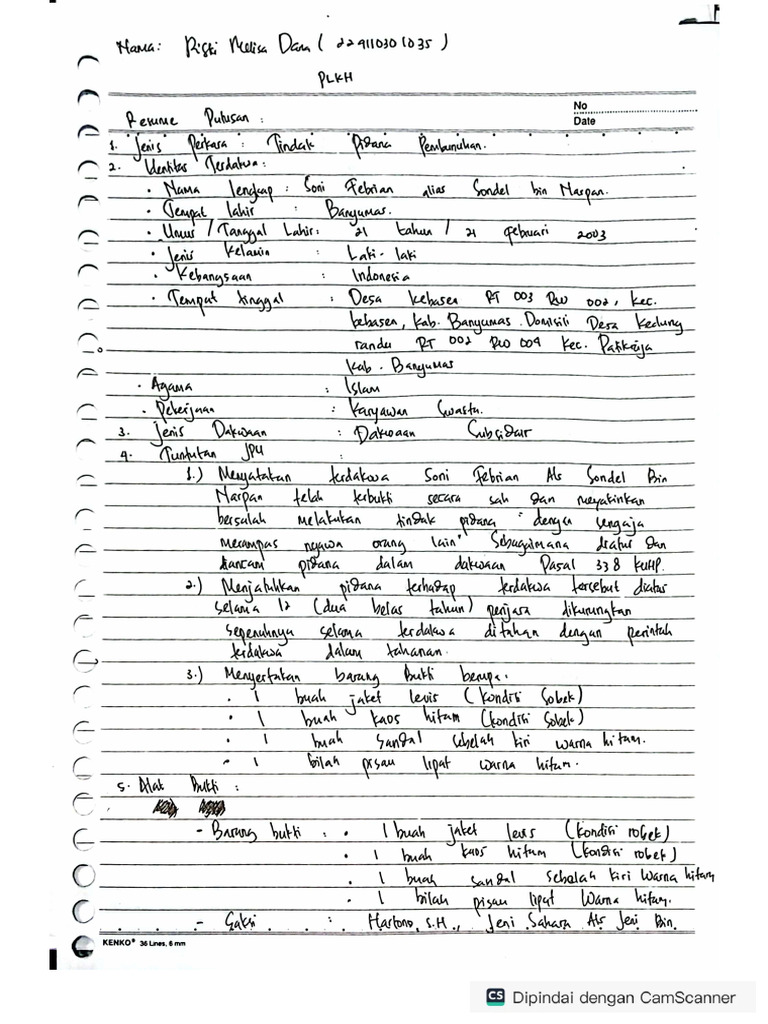 Nama: Riski Melisa Dara ( 2249110301035 )
PLKH
No
Date
Resume Putusan :
1. Jenis Perkara : Tindak Pidana Pembunuhan.
2. Identitas Terdakwa:
• Nama lengkap : Soni Febrian alias Sondel bin Narpan.
• Tempat lahir : Banyumas.
• Umur / Tanggal Lahir: 21 tahun / 21 februari 2003
• Jenis Kelamin : Laki-laki
• Kebangsaan : Indonesia
• Tempat tinggal : Desa kebasen RT 003 RW 002, Kec.
kebasen, Kab. Banyumas. Domisili Desa Kedung
randu RT 002 RW 004 Kec. Patikraja
Kab. Banyumas
• Agama : Islam
• Pekerjaan : Karyawan Swasta.
3. Jenis Dakwaan : Dakwaan Subsidair
4. Tuntutan JPU :
1.) Menyatakan terdakwa Soni Febrian Als Sondel Bin
Narpan telah terbukti secara sah dan meyakinkan
bersalah melakukan tindak pidana "dengan sengaja
merampas nyawa orang lain" Sebagaimana diatur dan
diancam pidana dalam dakwaan Pasal 338 KUHP.
2.) Menjatuhkan pidana terhadap terdakwa tersebut diatas
selama 12 (dua belas tahun) penjara dikurungkan
sepenuhnya selama terdakwa ditahan dengan perintah
terdakwa dalam tahanan.
3.) Menyertakan barang bukti berupa.
• 1 buah jaket levis (kondisi Sobek)
• 1 buah kaos hitam (kondisi Sobek)
• 1 buah Sandal sebelah kiri warna hitam.
• 1 bilah pisau lipat warna hitam.
5. Alat Bukti :
- Barang bukti : • 1 buah jaket levis (kondisi robek)
• 1 buah kaos hitam (kondisi robek)
• 1 buah sandal sebelah kiri warna hitam
• 1 bilah pisau lipat Warna hitam.
- Saksi : Hartono, S.H., Jeni Sahara Als Jeni Bin.
KENKO® 36 Lines, 6 mm
CS Dipindai dengan CamScanner